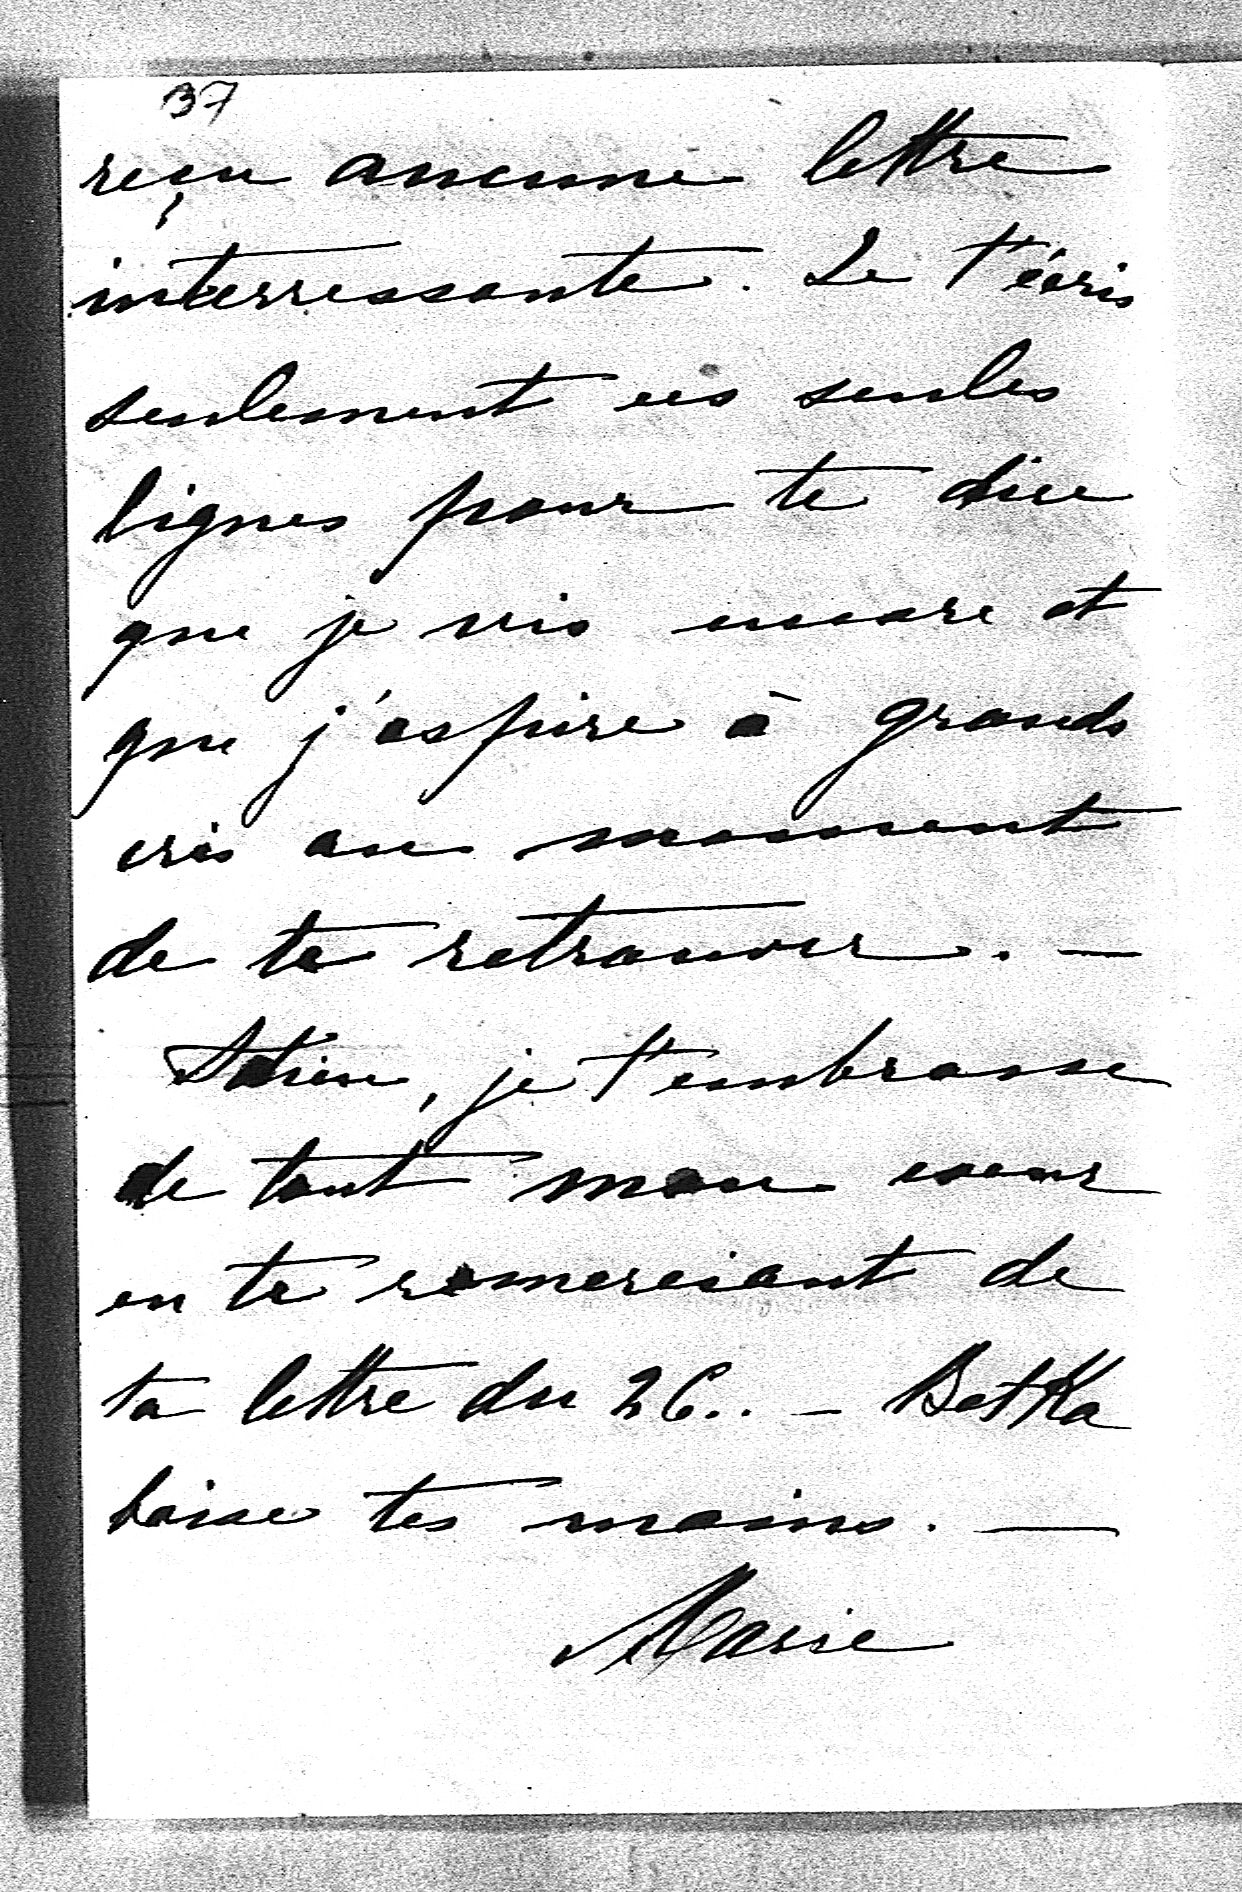 37
reçu aucune lettre
interressante. Je t'écris
seulement ces seules
lignes pour te dire
que je vis encore et
que j'aspire à grands
cris au moment
de te retrouver. —
Adieu, je t'embrasse
de tout mon coeur
en te remerciant de
ta lettre du 26.. — Betka
baise tes mains. —
Marie